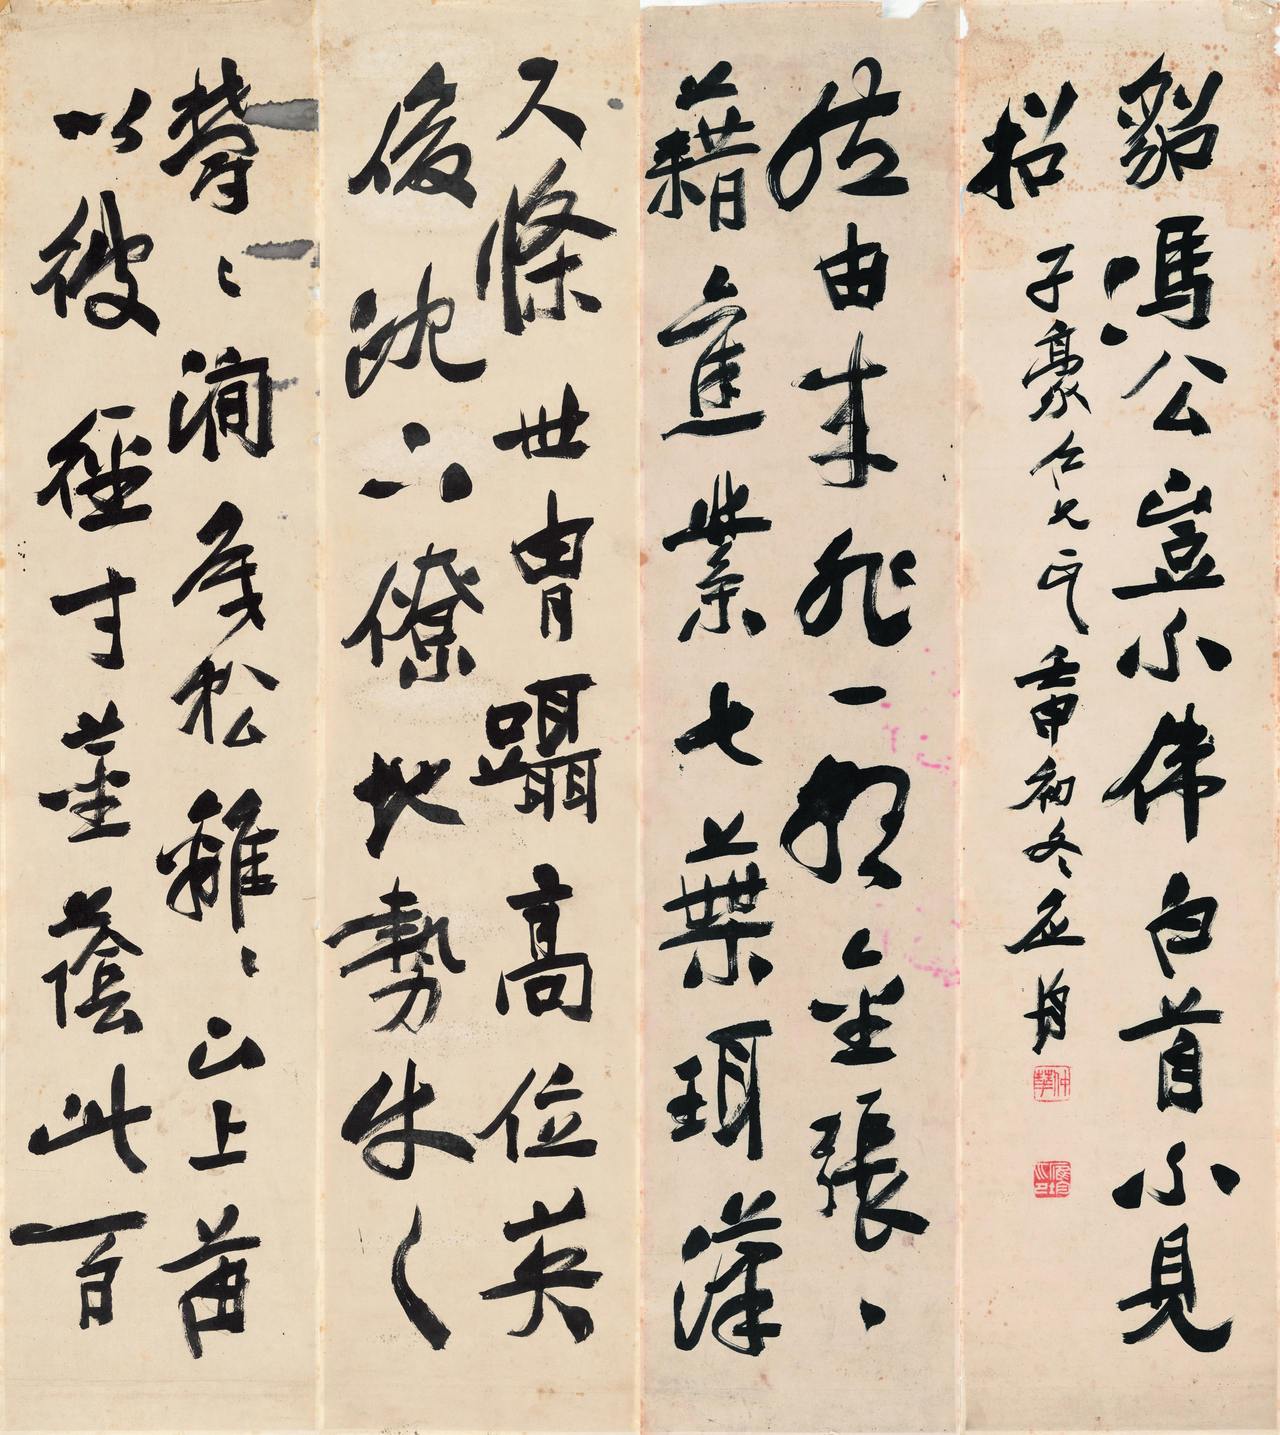 鬱〻澗底松離〻山上苗
以彼徑寸莖蔭此百
尺條世胄躡高位英
俊沈下僚地勢使之
然由來非一朝金張
藉舊業七葉珥漢
貂馮公豈不偉白首不見
招
子豪仁兄正 壬申初冬